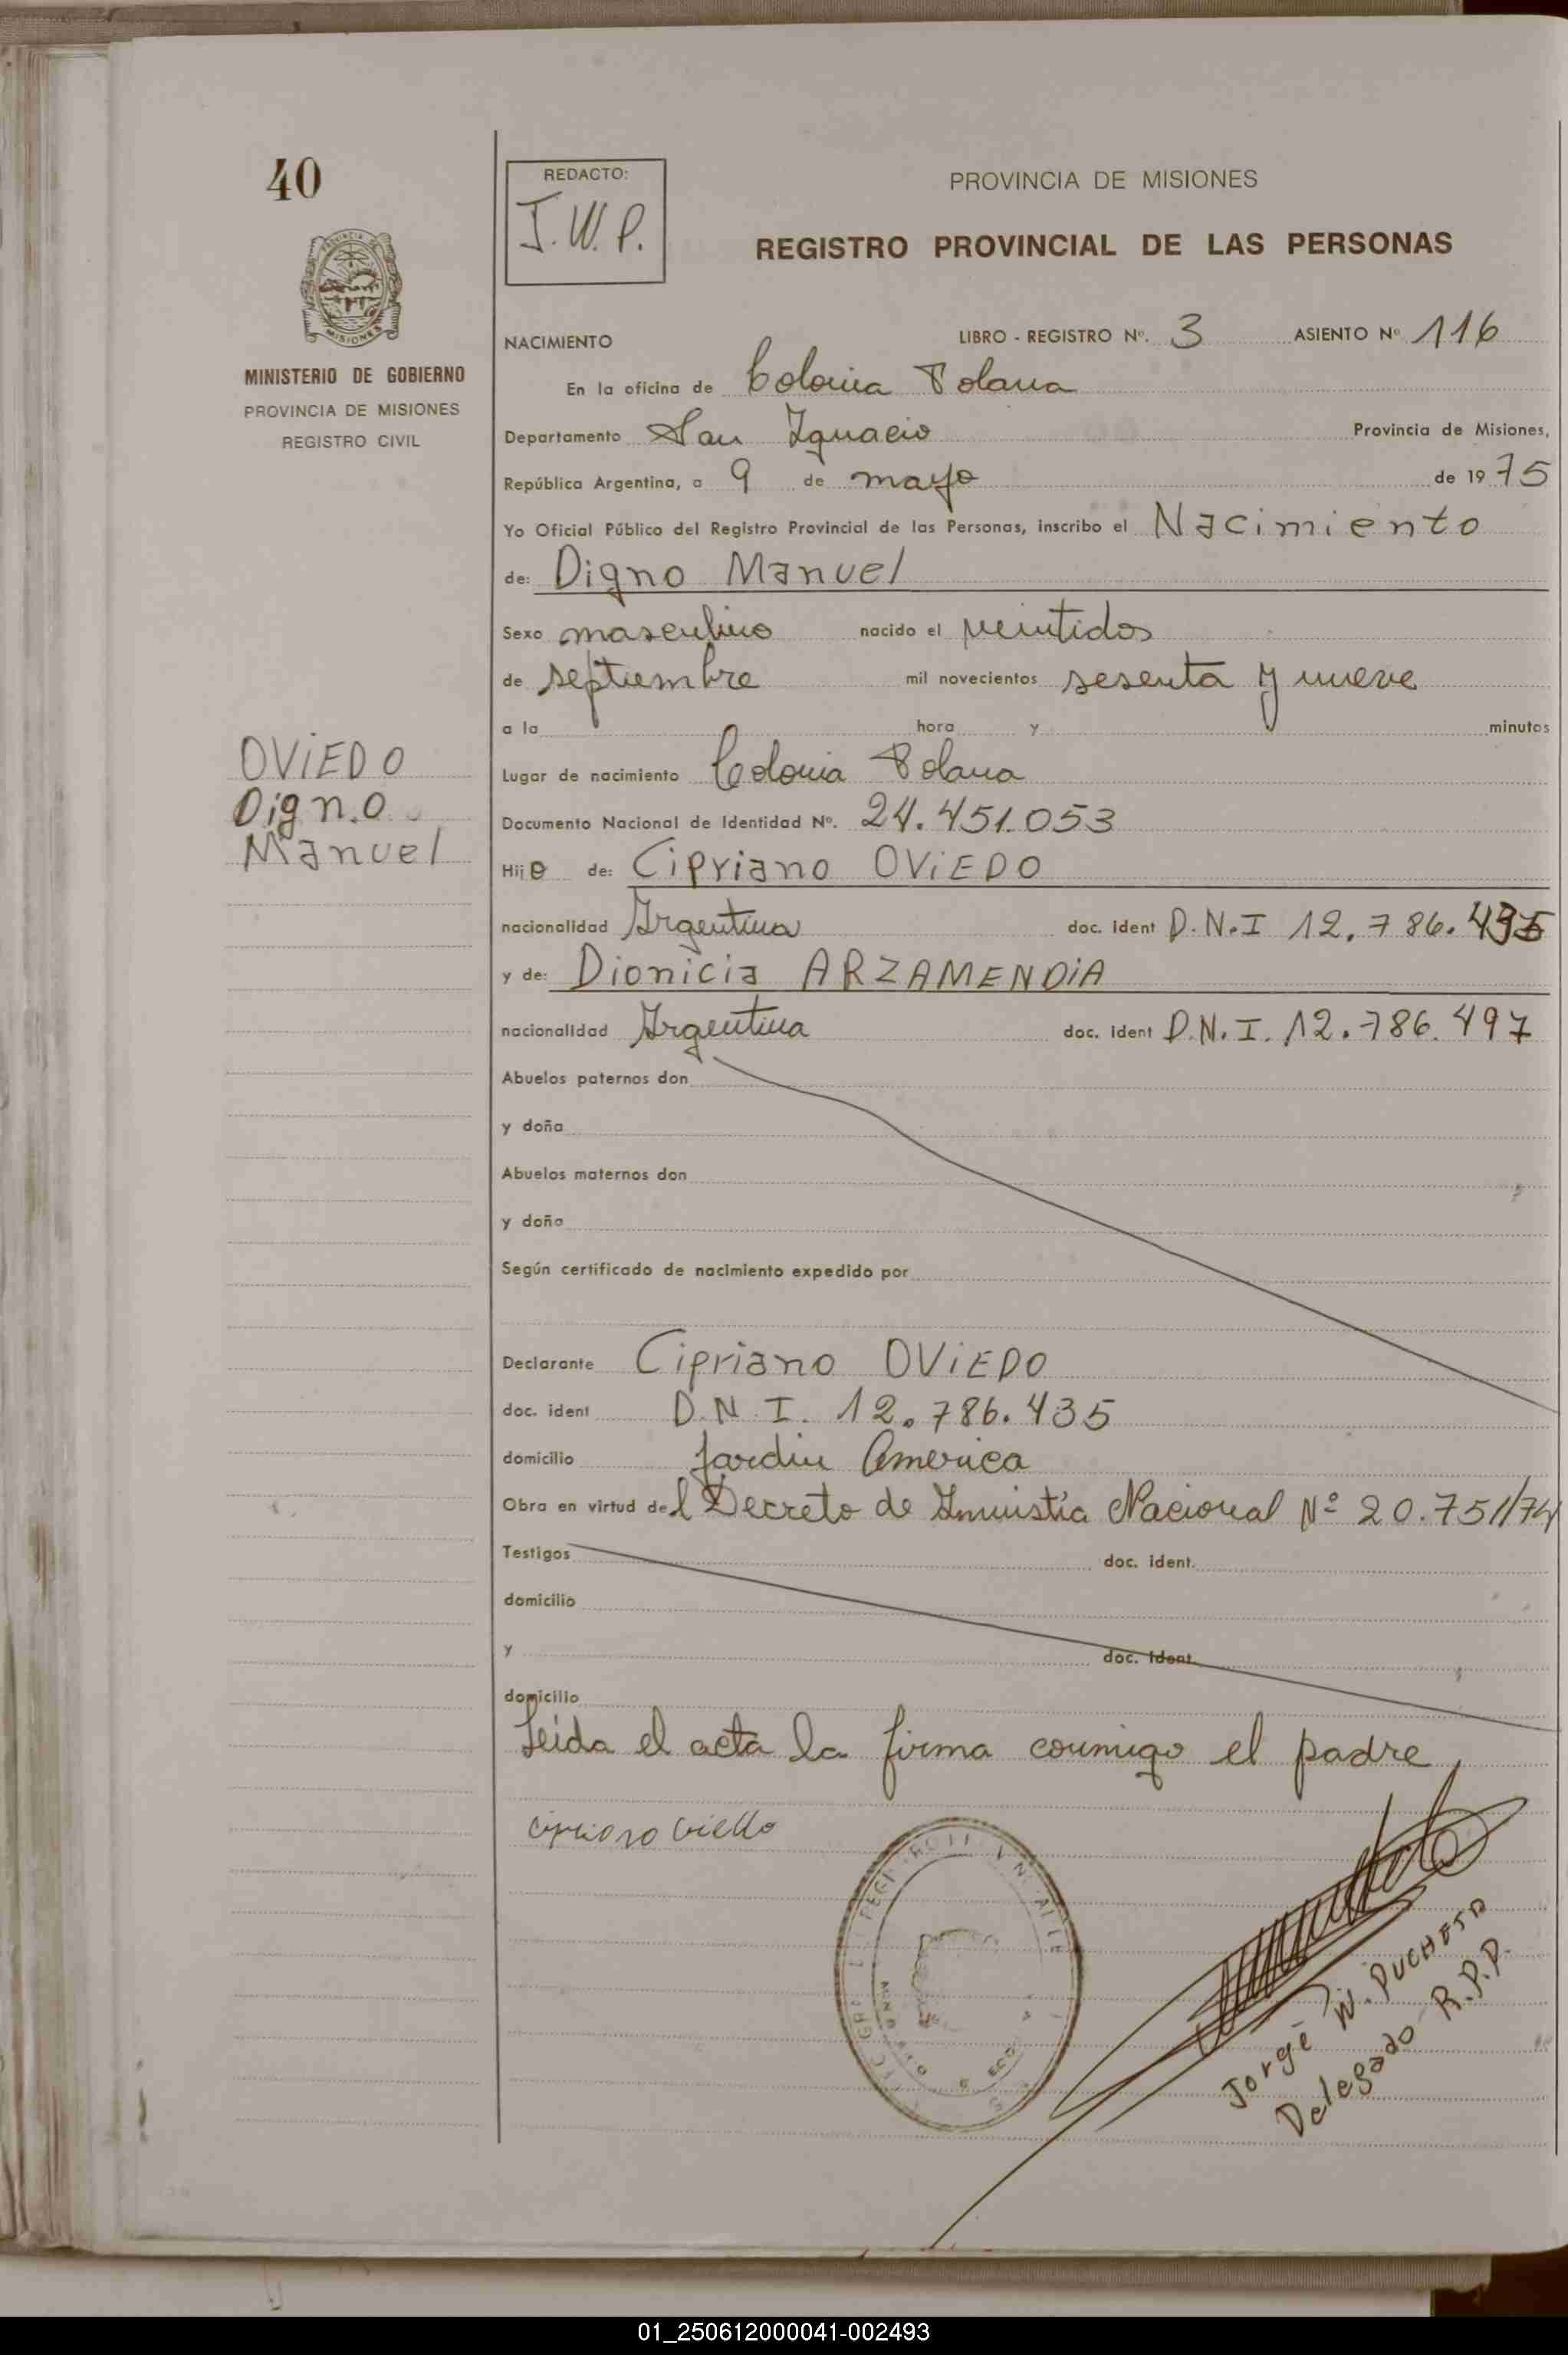 40
REDACTO:
J.W.P.
PROVINCIA DE MISIONES
REGISTRO PROVINCIAL DE LAS PERSONAS
MINISTERIO DE GOBIERNO
PROVINCIA DE MISIONES
REGISTRO CIVIL
NACIMIENTO LIBRO - REGISTRO Nº. 3 ASIENTO Nº 116
En la oficina de Colonia Polana
Departamento San Ignacio Provincia de Misiones,
República Argentina, a 9 de mayo de 1975
Yo Oficial Público del Registro Provincial de las Personas, inscribo el Nacimiento
de: Digno Manuel
Sexo masculino nacido el veintidos
de septiembre mil novecientos sesenta y nueve
a la hora y minutos
OVIEDO
Digno
Manuel
Lugar de nacimiento Colonia Polana
Documento Nacional de Identidad Nº. 24.451.053
Hijo de: Cipriano OVIEDO
nacionalidad Argentina doc. ident D.N.I 12.786.435
y de: Dionicia ARZAMENDIA
nacionalidad Argentina doc. ident D.N.I. 12.786.497
Abuelos paternos don
y doña
Abuelos maternos don
y doña
Según certificado de nacimiento expedido por
Declarante Cipriano OVIEDO
doc. ident D.N.I. 12.786.435
domicilio Jardin America
Obra en virtud del Decreto de Amnistía Nacional Nº 20.751/74
Testigos doc. ident.
domicilio
y doc. ident.
domicilio
Leida el acta la firma conmigo el padre
Jorge W. PUCHETA
Delegado R.P.P.
01_250612000041-002493